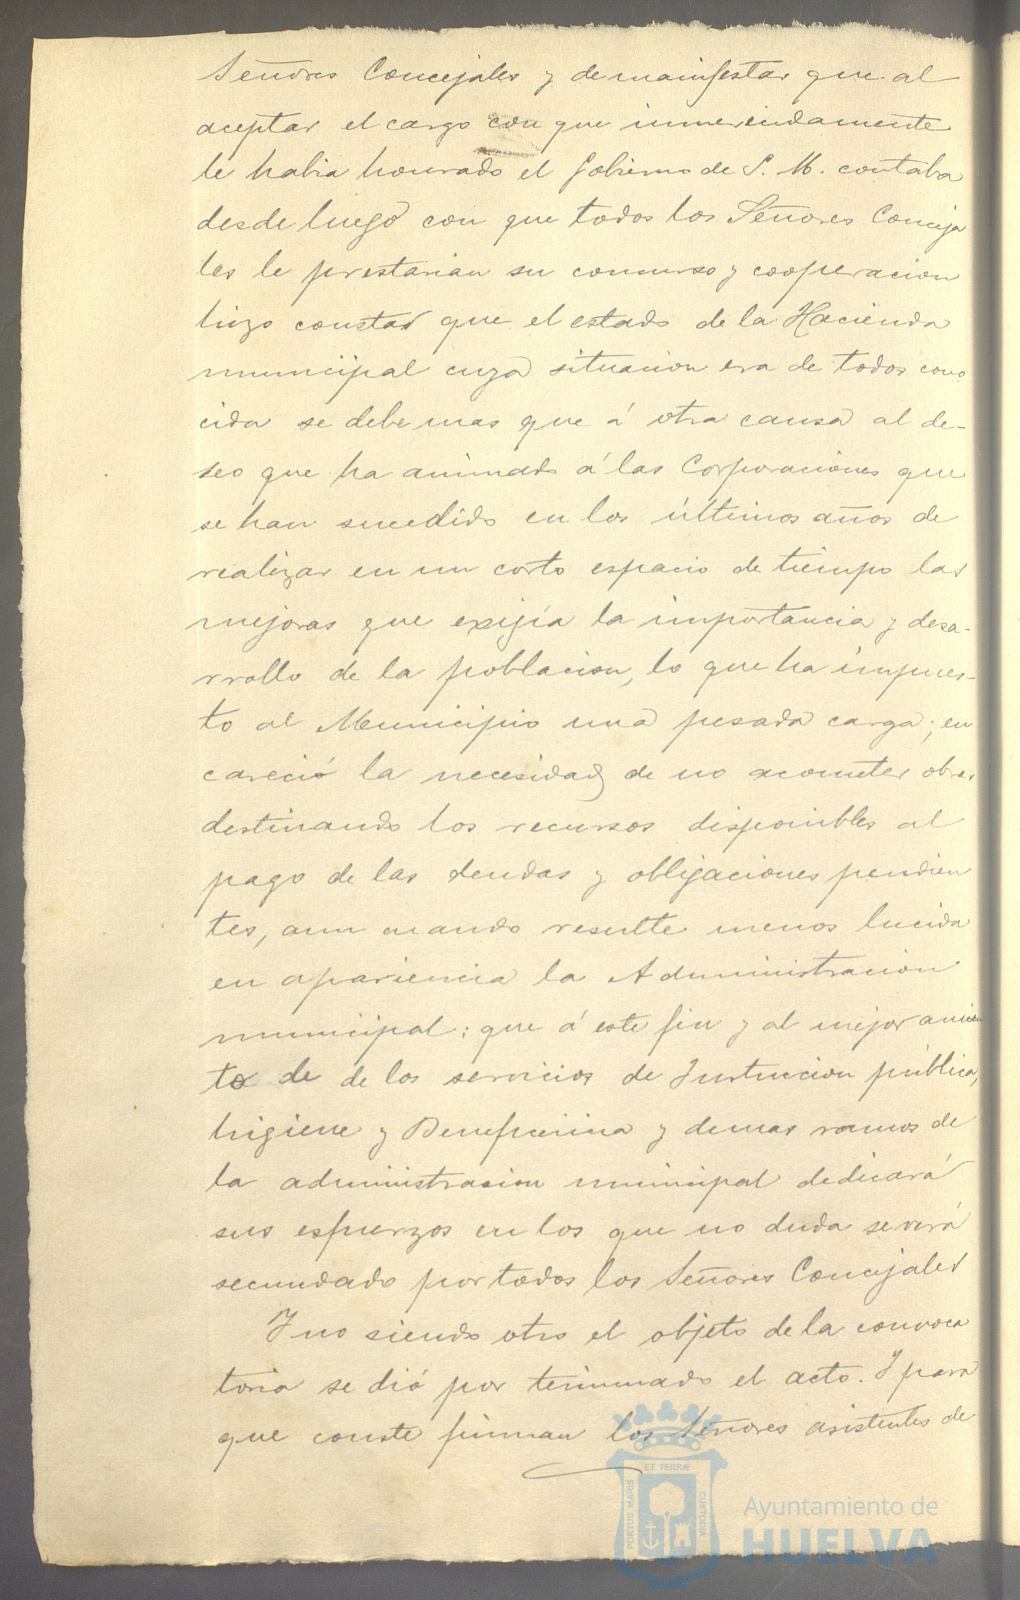 Señores Concejales y de manifestar que al
aceptar el cargo con que inmerecidamente
le habia honrado el Gobierno de S. M. contaba
desde luego con que todos los Señores Conceja
les le prestarian su concurso y cooperacion
hizo constar que el estado de la Hacienda
municipal cuya situacion era de todos cono
cida se debe mas que á otra causa al de-
seo que ha animado á las Corporaciones que
se han sucedido en los últimos años de
realizar en un corto espacio de tiempo las
mejoras que exigía la importancia y desa-
rrollo de la poblacion, lo que ha impues-
to al Municipio una pesada carga; en
careció la necesidad de no acometer obras
destinando los recursos disponibles al
pago de las deudas y obligaciones pendien
tes, aun cuando resulte menos lucida
en apariencia la Administracion
municipal: que á este fin y al mejoramien
to de de los servicios de Instruccion pública,
higiene y Beneficencia y demas ramos de
la administracion municipal dedicará
sus esfuerzos en los que no duda se verá
secundado por todos los Señores Concejales
Y no siendo otro el objeto de la convoca
toria se dió por terminado el acto. Y para
que conste firman los Señores asistentes de
ET TERRÆ
PORTUS MARIS
CUSTODIA
Ayuntamiento de
HUELVA